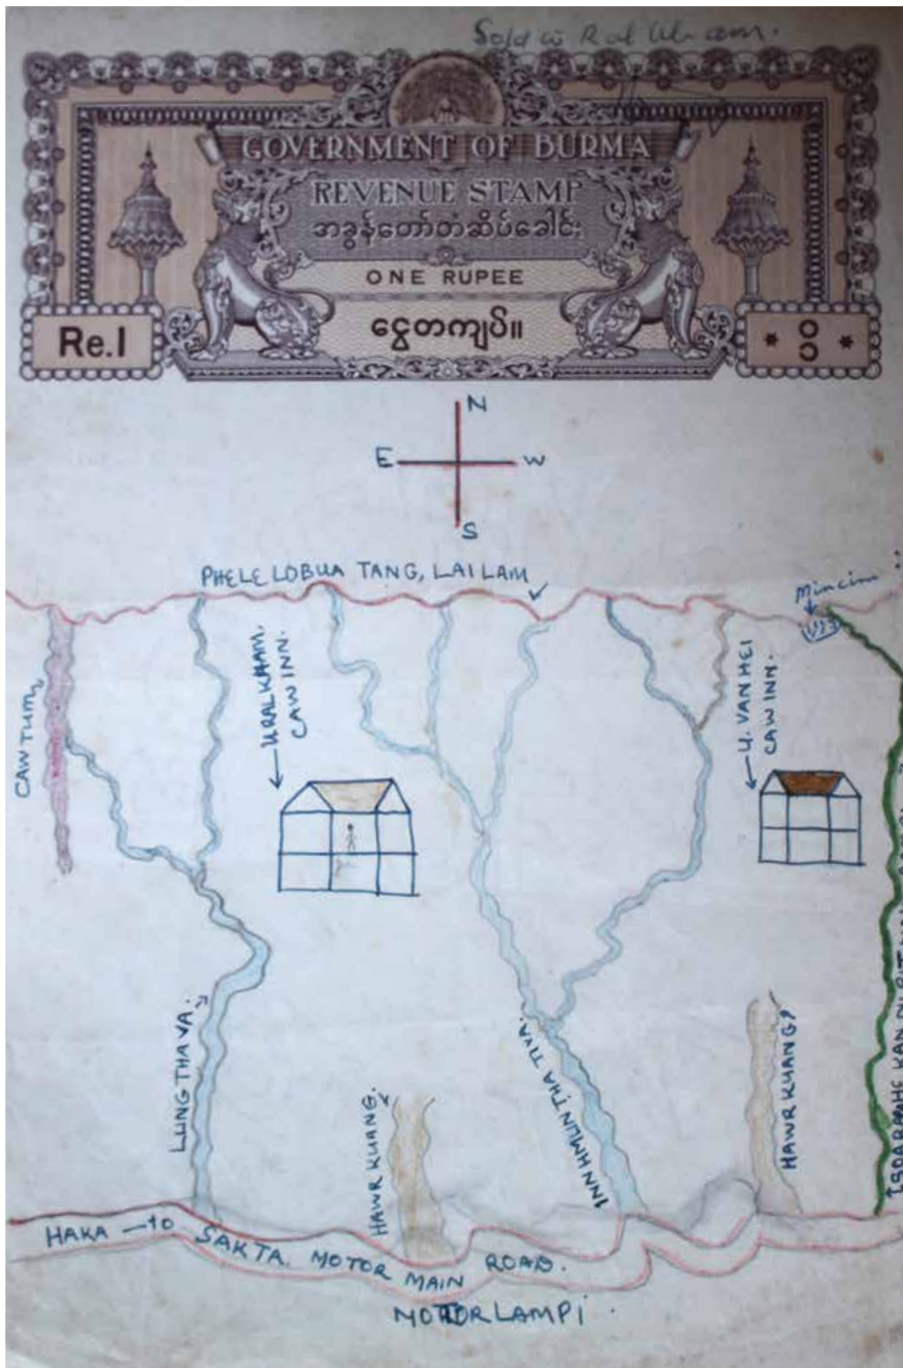 Sold
GOVERNMENT OF BURMA
REVENUE STAMP
အခွန်တော်တံဆိပ်ခေါင်း
ONE RUPEE
Re.1
ငွေတကျပ်။
* ၁ *
N
E
W
S
PHELELOBUA TANG, LAILAM
Mincim
CAWTUM
U RALKHAM.
CAWINN.
U. VANHEI
CAWINN.
LUNGTHAVA.
HAWRKUANG.
INNHMUNTHA TIVA.
HAWRKUANG
HAKA — to SAKTA. MOTOR MAIN ROAD.
MOTOR LAMPI.